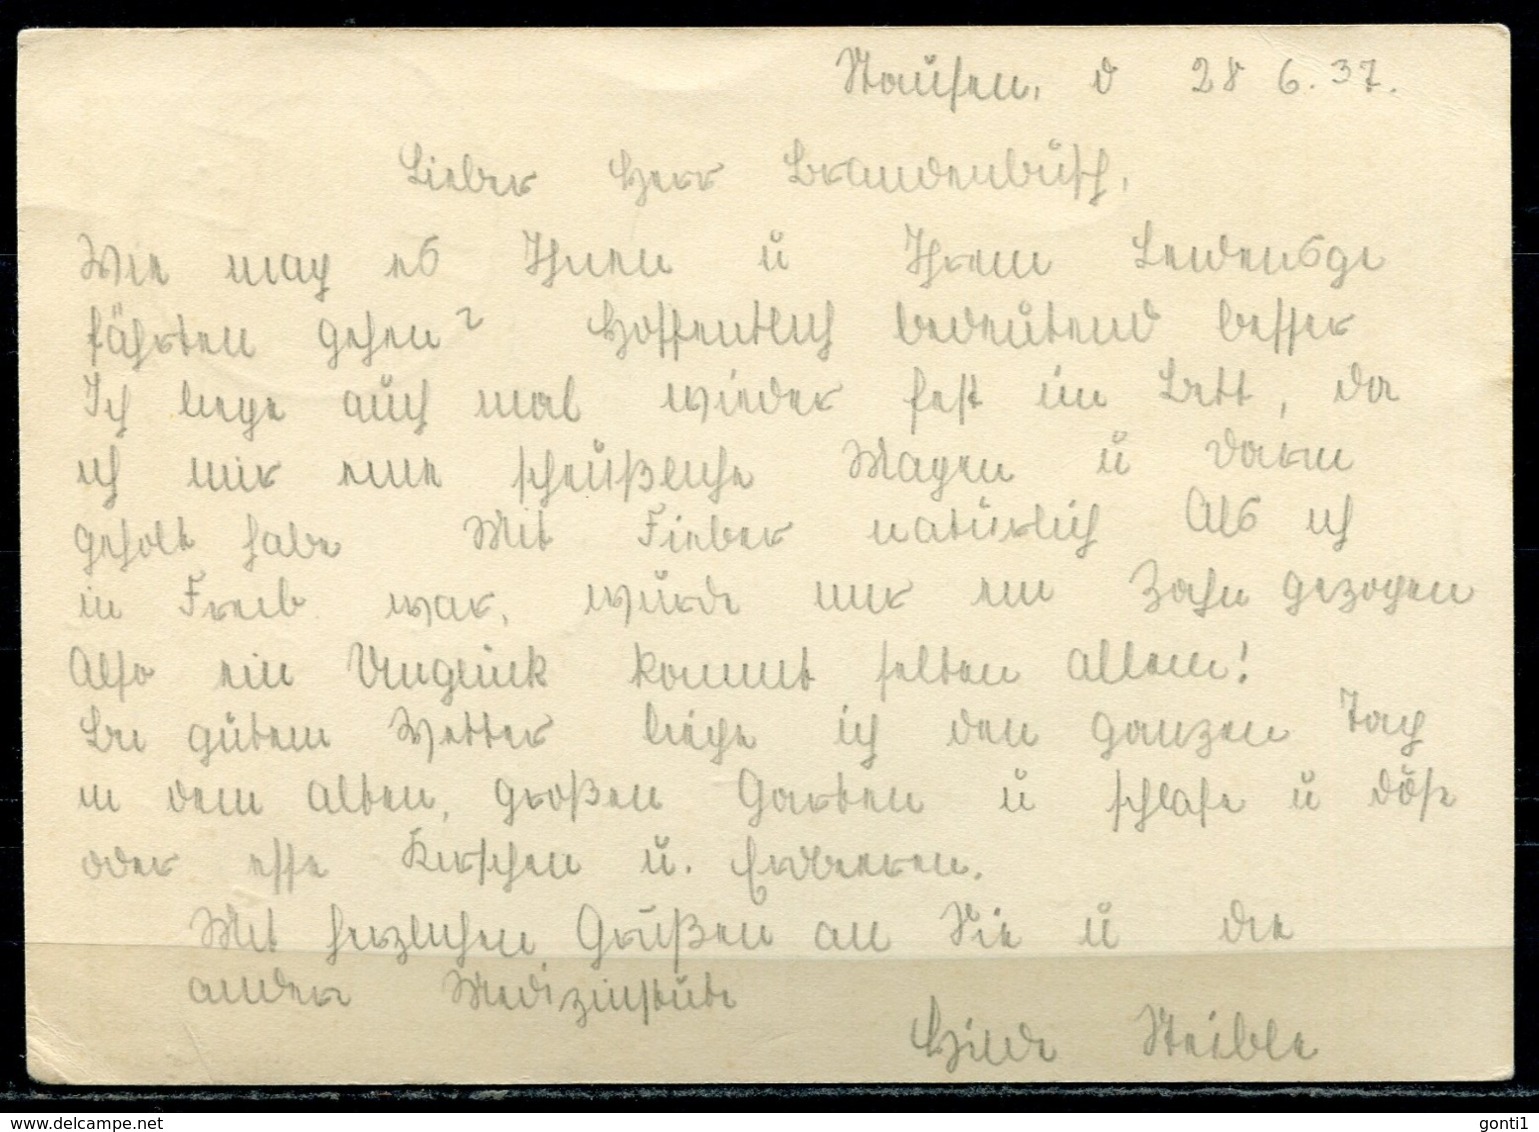 Staufen, d 28 6.37.
Lieber Herr Brandenbusch,
Wie mag es Ihnen u Ihrem Leidensge
fährten gehen? Hoffentlich bedeutend besser
Ich liege auch mal wieder fest im Bett, da
ich mir eine scheußliche Magen u Darm
geholt habe Mit Fieber natürlich Als ich
in Freib war, wurde mir ein Zahn gezogen
Also ein Unglück kommt selten allein!
Bei gutem Wetter liege ich den ganzen Tag
in dem alten, großen Garten u schlafe u döse
oder esse Kirschen u. Erdbeeren.
Mit herzlichen Grüßen an Sie u die
ander Medizinstube
Hilde Steible
www.delcampe.net
gonti1